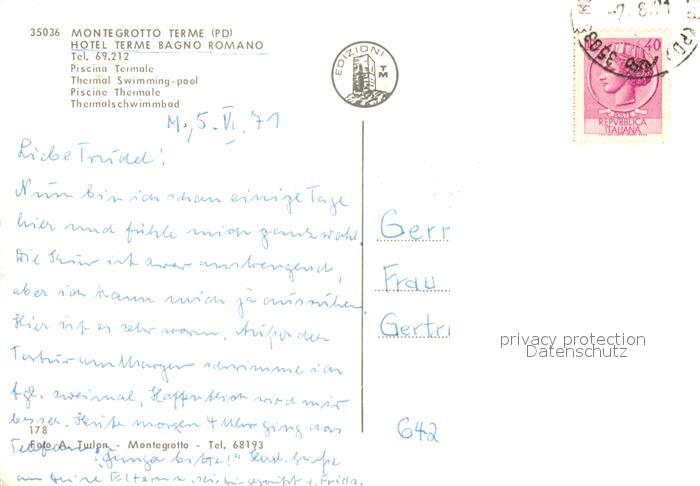 35036 MONTEGROTTO TERME (PD)
HOTEL TERME BAGNO ROMANO
Tel. 69.212
Piscina Termale
Thermal Swimming-pool
Piscine Thermale
Thermalschwimmbad
EDIZIONI
TM
40
POSTE
REPVBBLICA
ITALIANA
M., 5. VI. 71
Liebe Trudel!
Nun bin ich schon einige Tage
hier und fühle mich ganz wohl.
Die Kur ist zwar anstrengend,
aber ich kann mich ja ausruhen.
Hier ist es sehr warm. Außer der
Tortur am Morgen schwimme ich
tgl. zweimal. Hoffentlich wird mir
besser. Heute morgen 4 Uhr ging das
Telefon
"Junga bitte!" Herzl. Grüße
178
Foto A. Turlon - Montegrotto - Tel. 68193
Germ
Frau
Gertr
642
privacy protection
Datenschutz